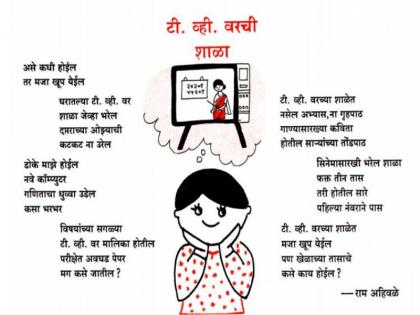 टी. व्ही. वरची
शाळा
असे कधी होईल
तर मजा खूप येईल
घरातल्या टी. व्ही. वर
शाळा जेव्हा भरेल
दप्तराच्या ओझ्याची
कटकट ना उरेल
डोके माझे होईल
नवे कॉम्प्युटर
गणिताचा धुव्वा उडेल
कसा भरभर
विषयांच्या सगळ्या
टी. व्ही. वर मालिका होतील
परीक्षेत अवघड पेपर
मग कसे जातील ?
टी. व्ही. वरच्या शाळेत
नसेल अभ्यास,ना गृहपाठ
गाण्यासारख्या कविता
होतील साऱ्यांच्या तोंडपाठ
सिनेमासारखी भरेल शाळा
फक्त तीन तास
तरी होतील सारे
पहिल्या नंबराने पास
टी. व्ही. वरच्या शाळेत
मजा खूप येईल
पण खेळाच्या तासाचे
कसे काय होईल ?
— राम अहिवळे